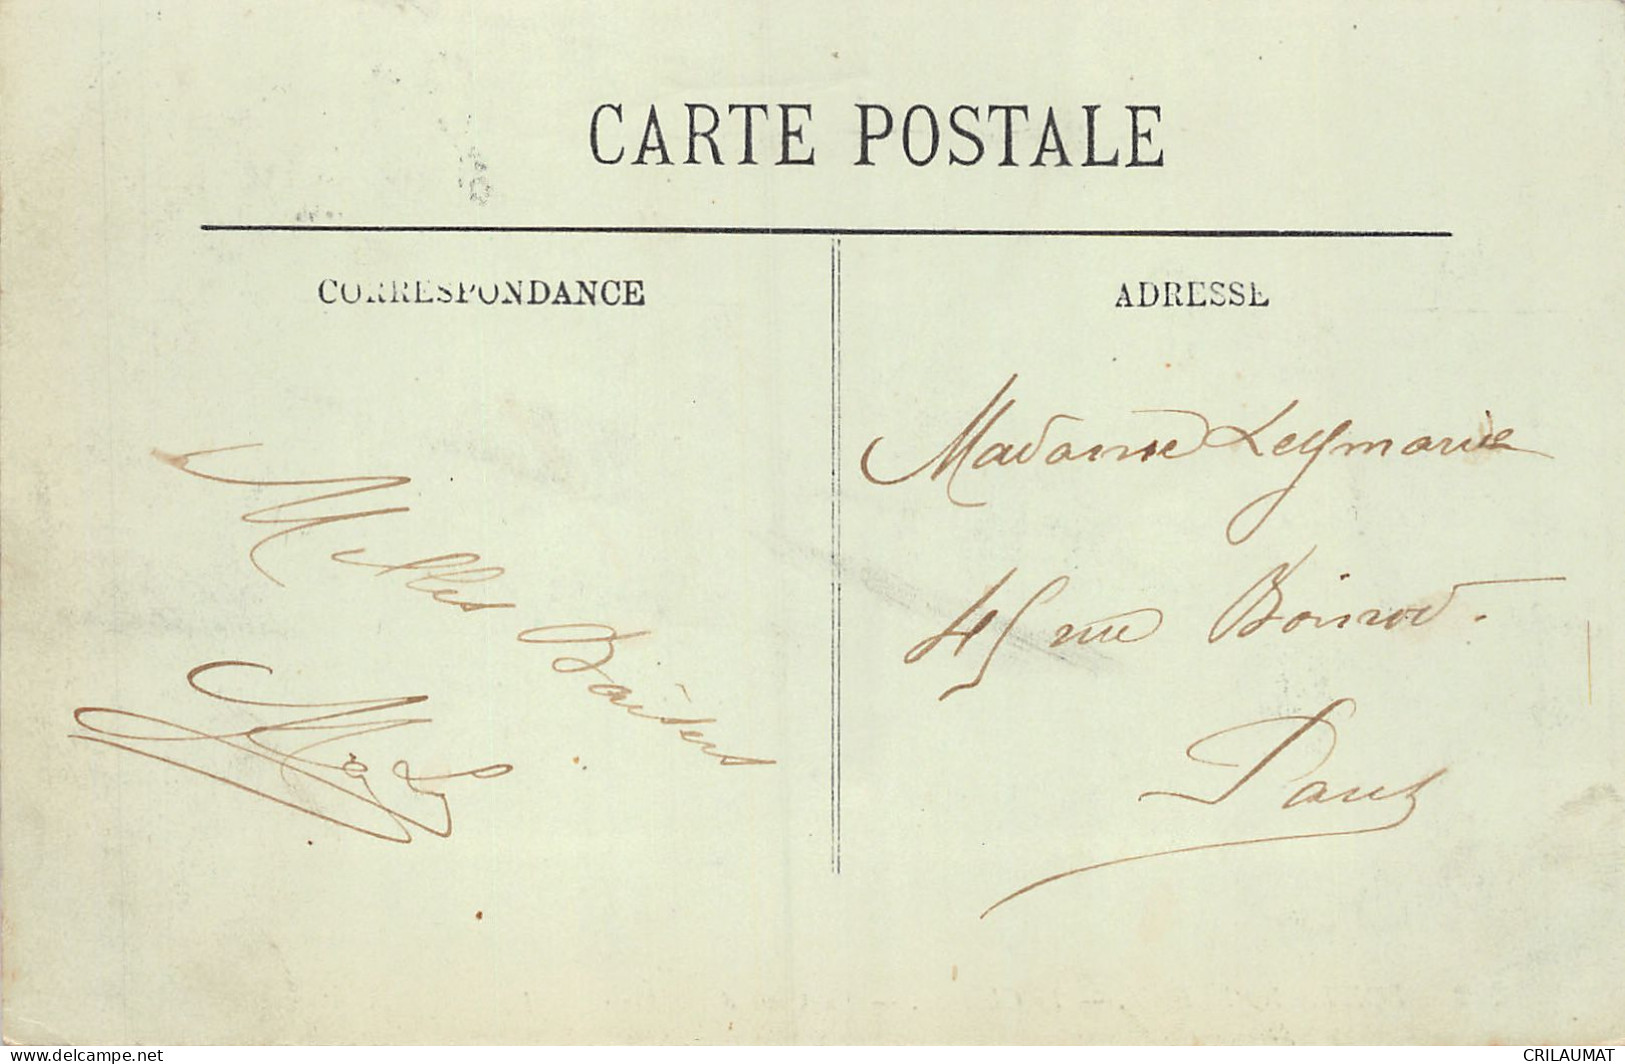 CARTE POSTALE
CORRESPONDANCE
ADRESSE
Milles Baisers
Madame Leymarie
45 rue Boinod.
Paris
www.delcampe.net
CRILAUMAT